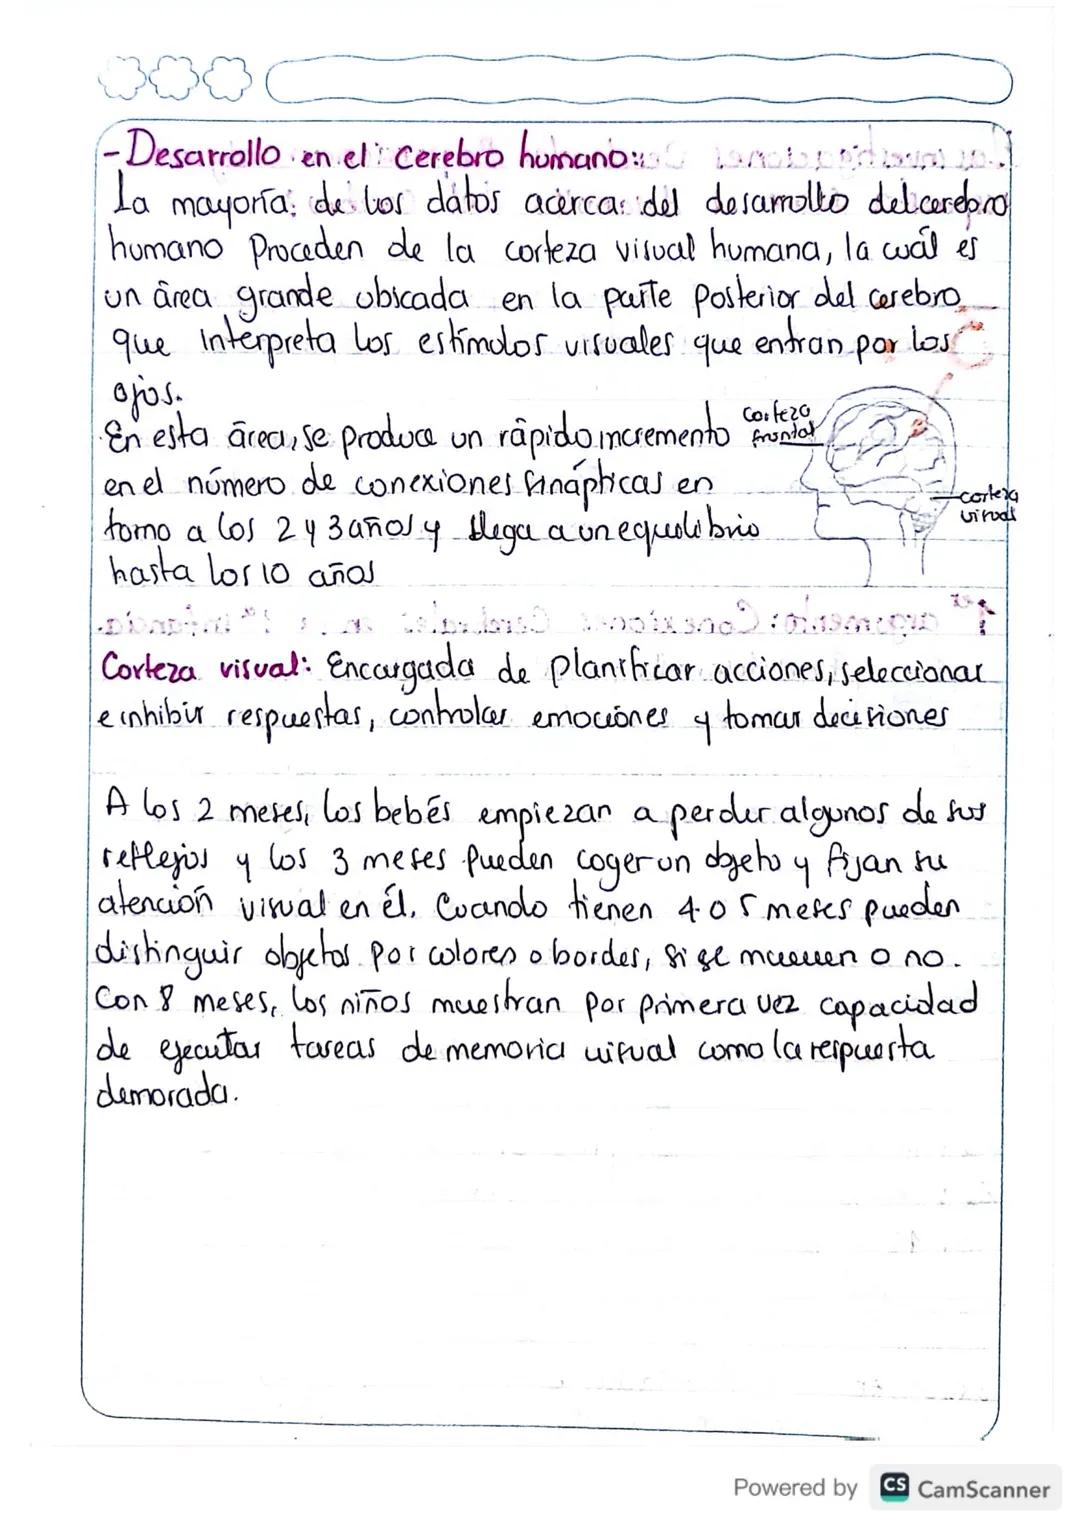 -Desarrollo en el cerebro humano:
La mayoría de los datos acerca del desarrollo del cerebro
humano Proceden de la corteza visual humana, la cuál es
un área grande ubicada en la parte Posterior del cerebro
que interpreta los estímulos visuales que entran por los
ojos.
En esta área, se produce un rápido incremento
en el número de conexiones sinápticas en
torno a los 2 y 3 años y llega a un equilibrio
hasta los 10 años
Corteza
frontal
corteza
visual
Corteza visual: Encargada de Planificar acciones, seleccionar
e inhibir respuestas, controlar emociones y tomar decisiones
A los 2 meses, los bebés empiezan a perder algunos de sus
reflejos y los 3 meses Pueden coger un objeto y fijan su
atención visual en él. Cuando tienen 4 o 5 meses pueden
distinguir objetos por colores o bordes, si se mueven o no.
Con 8 meses, los niños muestran por primera vez capacidad
de ejecutar tareas de memoria visual como la respuesta
demorada.
Powered by CS CamScanner